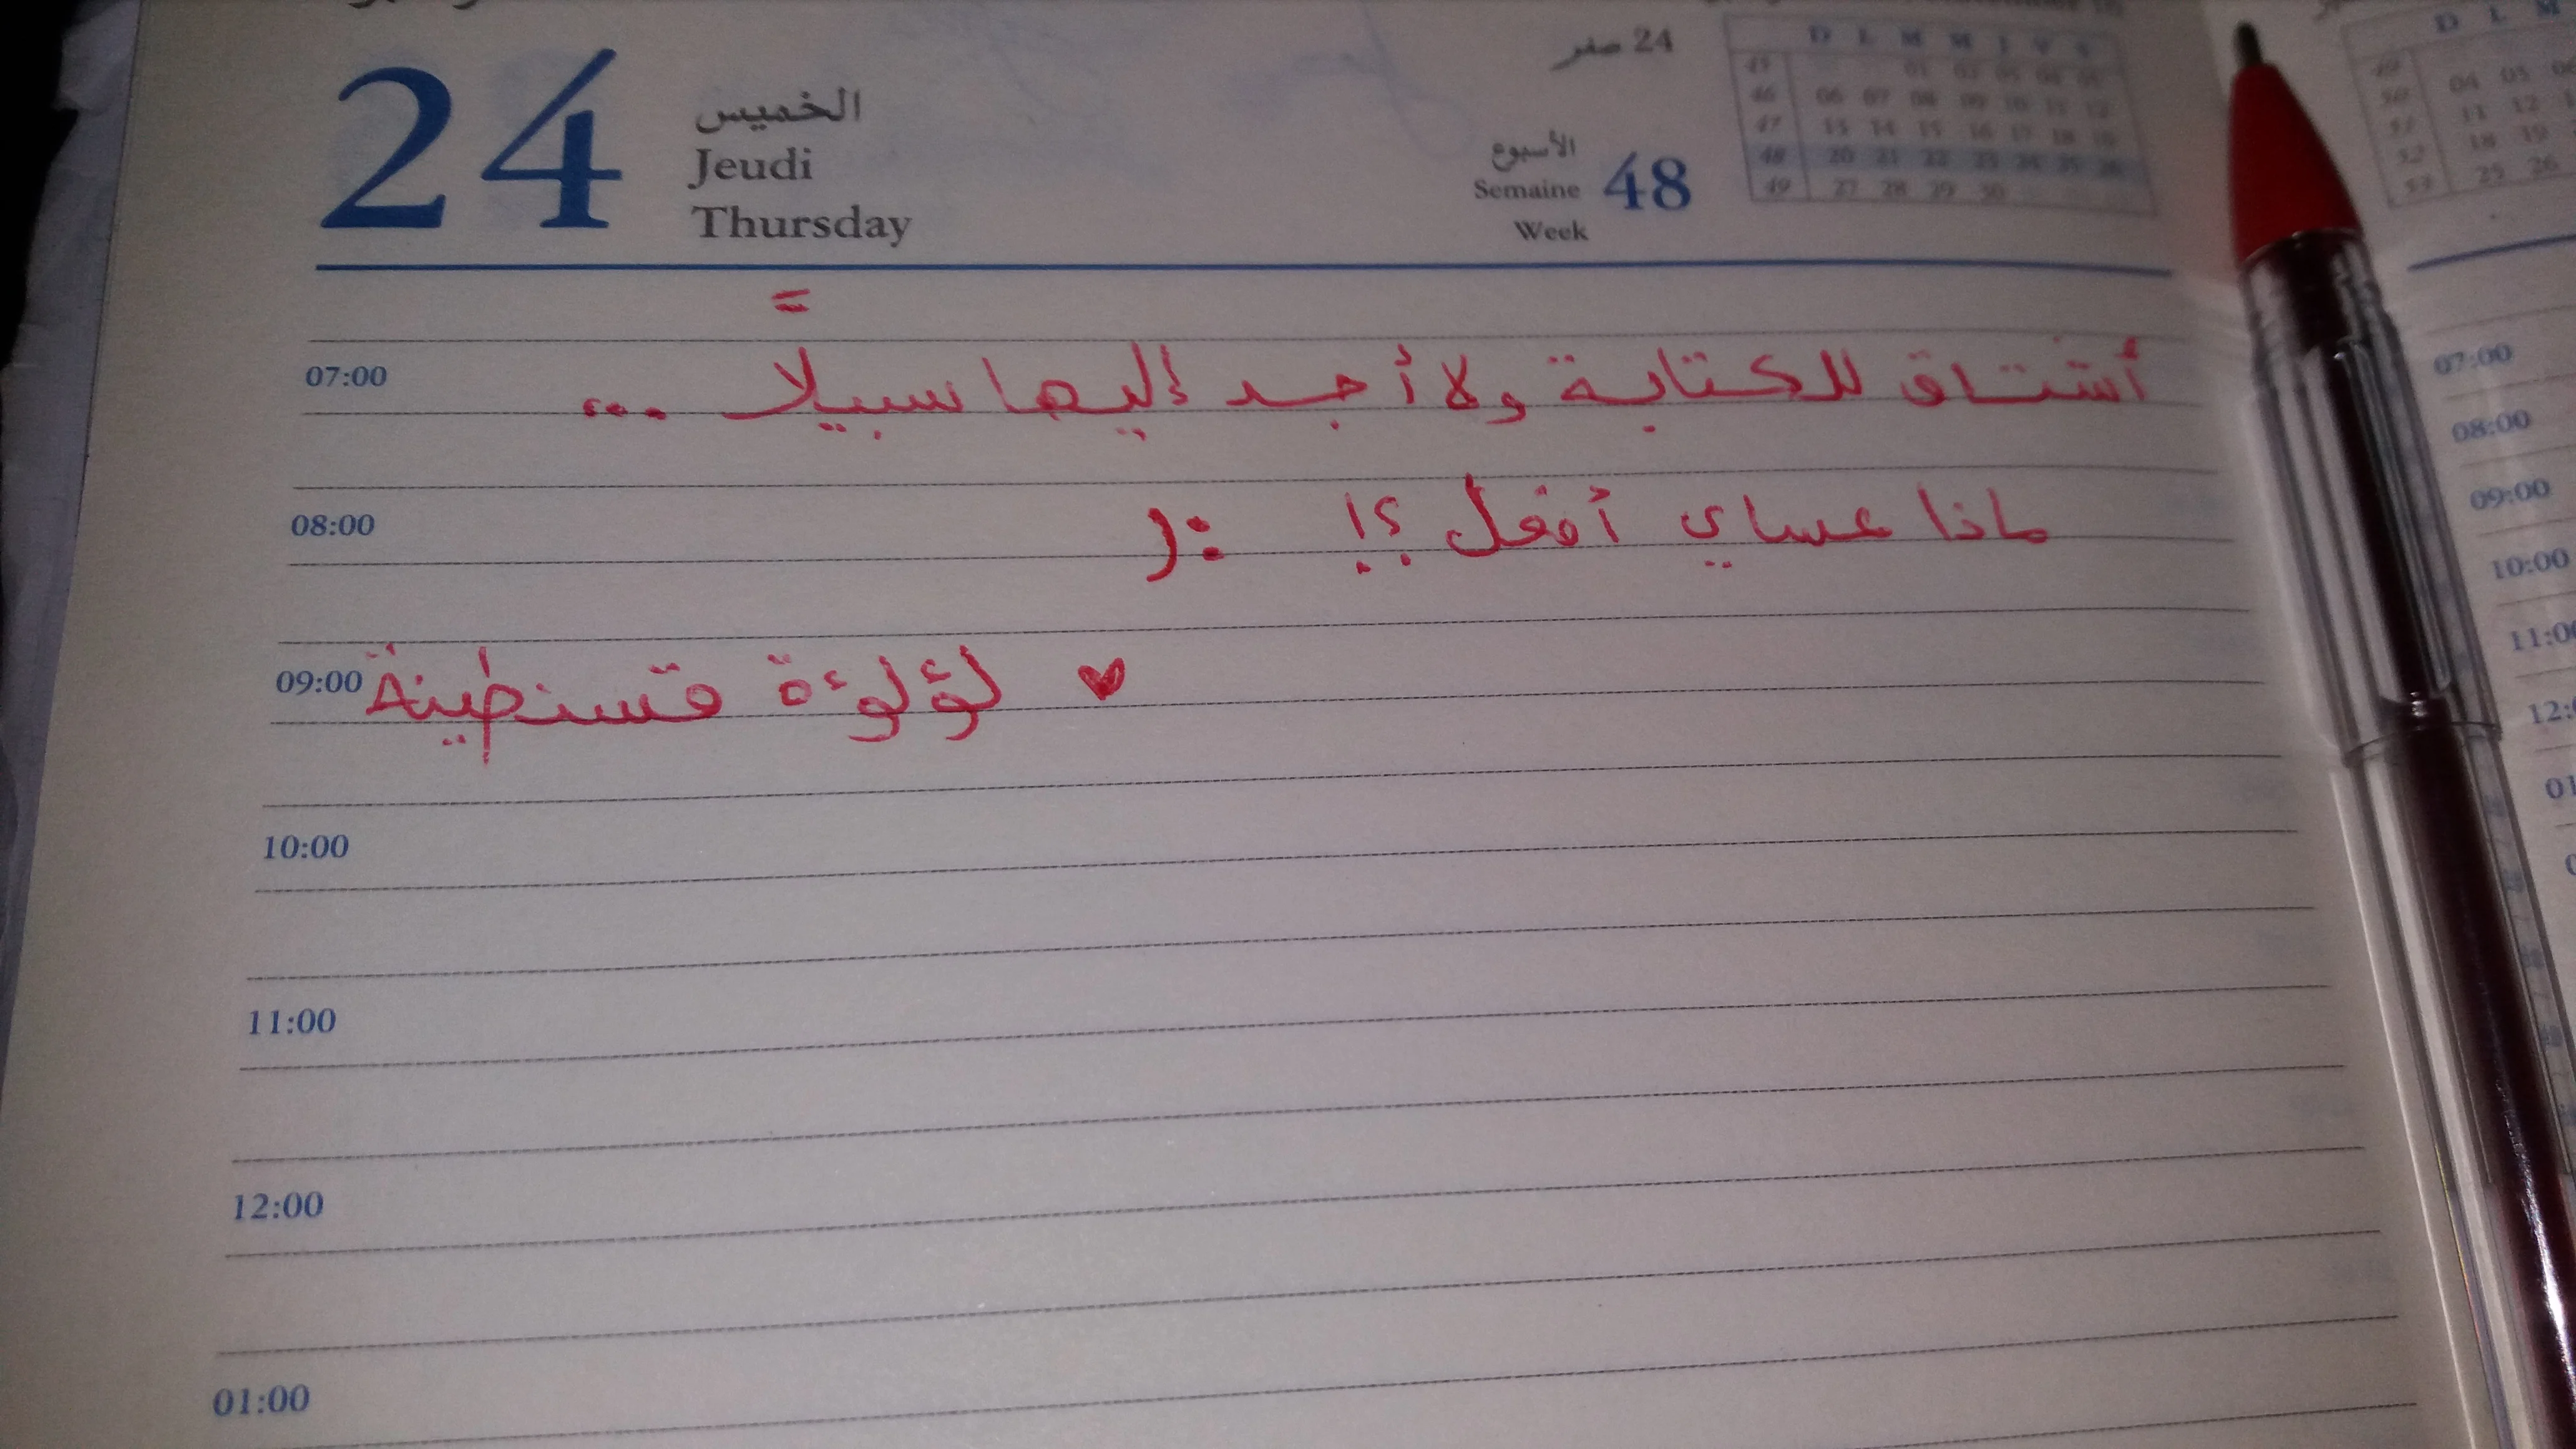 24
الخميس
Jeudi
Thursday
24 صفر
الأسبوع
Semaine
Week
48
D L M M J V S
45 01 02 03 04 05
46 06 07 08 09 10 11 12
47 13 14 15 16 17 18 19
48 20 21 22 23 24 25 26
49 27 28 29 30
أشتاق للكتابة ولا أجد إليها سبيلاً ...
ماذا عساي أفعل ؟! :(
♥ لؤلوءة قسنطينة
07:00
08:00
09:00
10:00
11:00
12:00
01:00
D L M
04 05
11 12
18 19
25 26
07:00
08:00
09:00
10:00
11:00